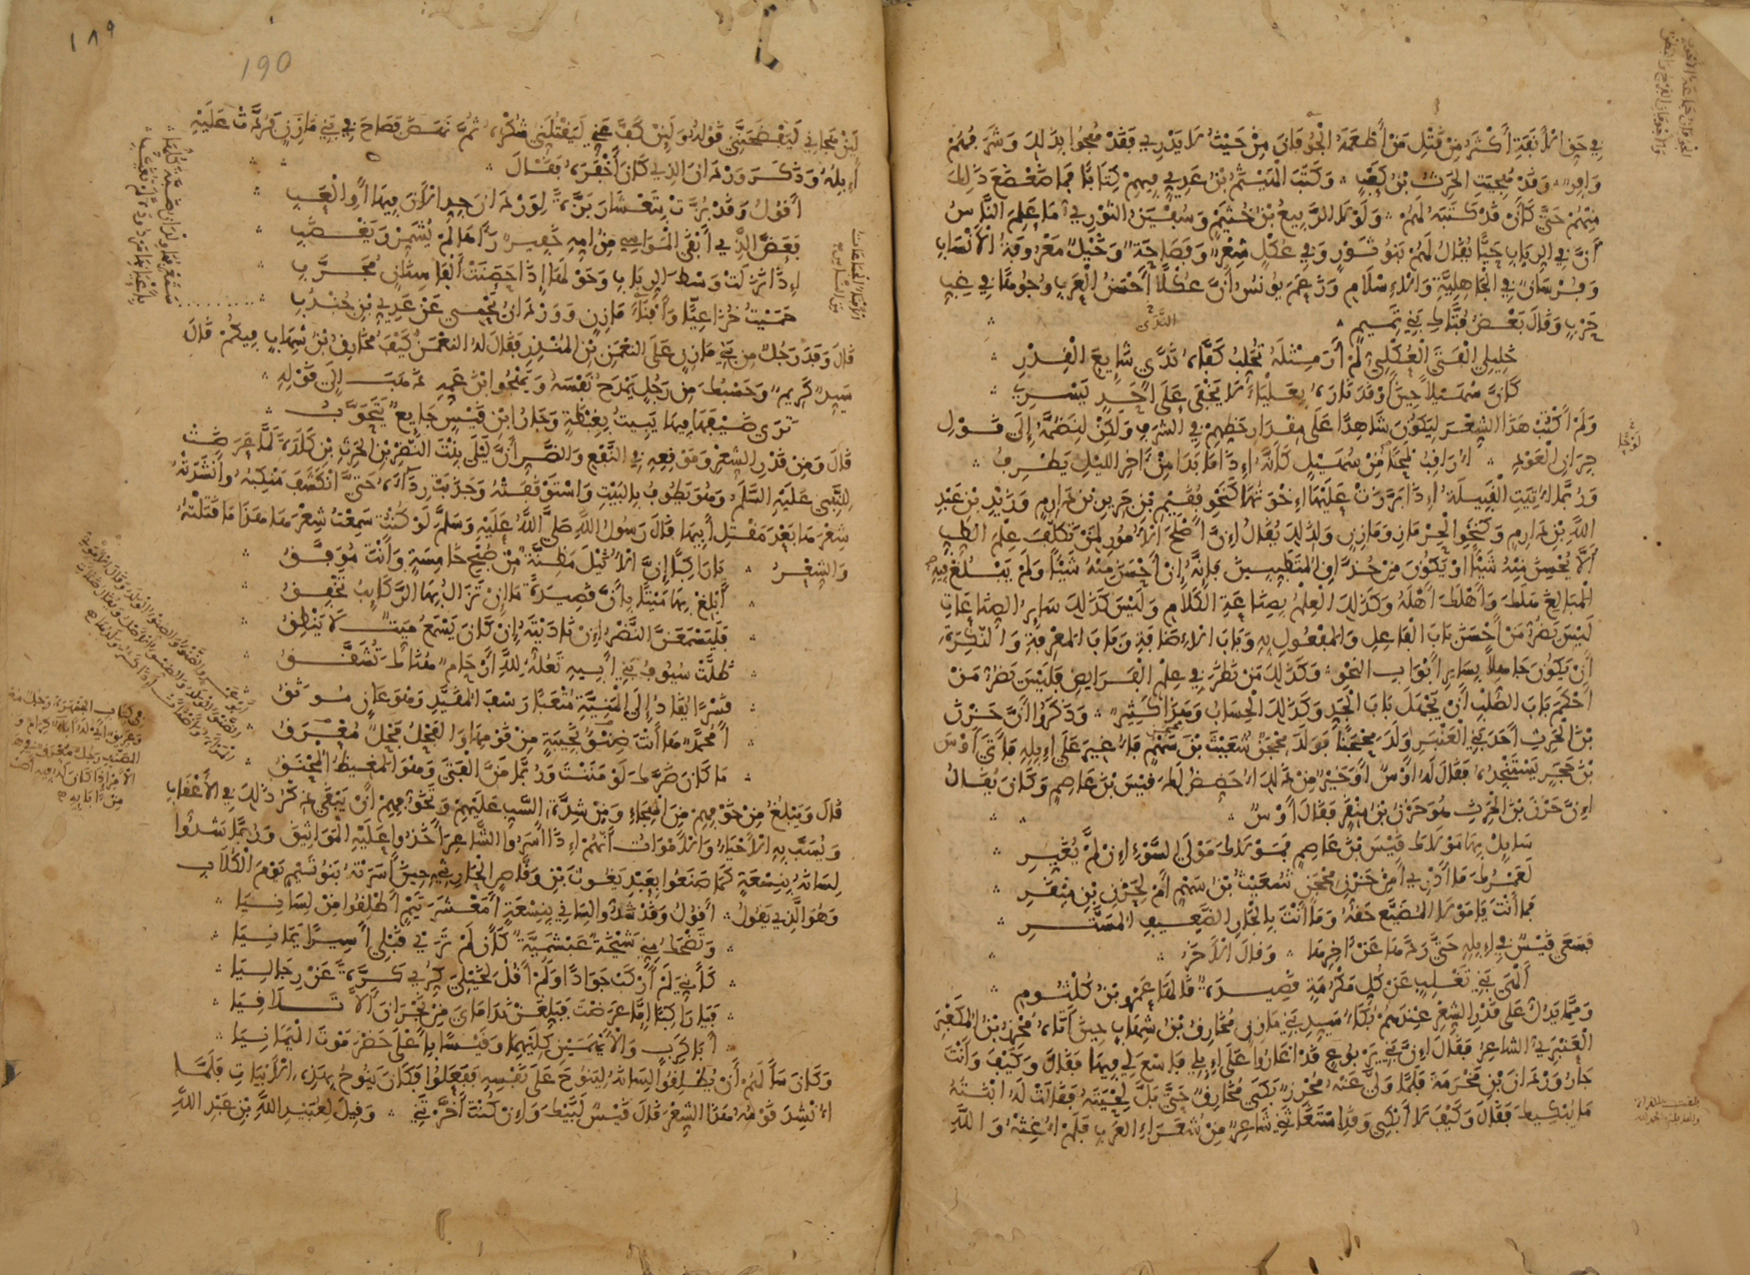 في جوف الأنقة أكثر من قتل من أطعمة الجوفان من حيث لا يدري فقد هجوا بذلك وشرفهم
وافر وقد هجيت الحرث بن كعب وكتب الهيثم بن عدي فيهم كتابا فما ضعضع ذلك
منهم حتى كأن قد كتبه لهم ولولا الربيع بن خثيم وسفين الثوري ما علم الناس
أن في الرباب حيا يقال لهم بنو ثور وفي عكل شعر وفصاحة وخيل معروفة الأنساب
وفرسان في الجاهلية والإسلام وزعم يونس أن عكلا أحسن العرب وجوها في غب
حرب وقال بعض فتاك بني تميم
خليلي الفتى العكلي لم أر مثله تحلب كفاه ندى شايع القدر
كأن سهيلا حين أوقد ناره بعلياء لا يخفى على أحد يسري
ولم أكتب هذا الشعر ليكون شاهدا على مقدار حظهم في الشرف ولكن لنضمه إلى قول
جران العود أراقب لمحا من سهيل كأنه إذا ما بدا من آخر الليل يطرف
وربما أتيت القبيلة إذا برزت عليها إخوتها كنحو فقيم بن جرير بن دارم وزيد بن عبد
الله بن دارم وكنحو الحرماز ومازن ولذلك يقال إن أصلح الأمور لمن تكلف علم الطب
ألا يحسن منه شيئا أو يكون من حذاق المتطببين فإنه إن أحسن منه شيئا ولم يبلغ فيه
المبالغ هلك وأهلك أهله وكذلك العلم بصناعة الكلام وليس كذلك ساير الصناعات
ليس يضر من أحسن باب الفاعل والمفعول به وباب الإضافة وباب المعرفة والنكرة
أن يكون جاهلا بساير أبواب النحو وكذلك من نظر في علم الفرايض فليس يضر من
أحكم باب الصلب أن يجهل باب الجد وكذلك الحساب وهذا كثير وذكروا أن حزن
بن الحرث أحد بني العنبر ولد محجنا فولد محجن شعيث بن سهم فأغير على إبله فأتى أوس
بن حجر يستنجده فقال له أوس أو خير من ذلك أحضض لك قيس بن عاصم وكان يقال
إن حزن بن الحرث هو حزن بن منقر فقال أوس
سايل بها مولاك قيس بن عاصم فمولاك مولى السوء إن لم يغير
لعمرك ما أدري أمن حزن محجن شعيث بن سهم أم لحزن بن منقر
فما أنت بالمولى المضيع حقه وما أنت بالجار الضعيف المستر
فسعى قيس في إبله حتى ردها عن آخرها وقال الآخر
ألهى بني تغلب عن كل مكرمة قصيدة قالها عمرو بن كلثوم
ومما يدل على قدر الشعر عندهم بكاء سيد بني مازن مخارق بن شهاب حين أتاه محرز بن المكعبر
العنبري الشاعر فقال إن بني يربوع قد أغاروا على إبلي فاسع لي فيها فقال وكيف وأنت
جار وردان بن مخرمة فلما ولى عنه محرز بكى مخارق حتى بل لحيته فقالت له ابنته
ما يبكيك فقال وكيف لا أبكي وقد استغاثني شاعر من شعراء العرب فلم أغثه والله
١٨٩
190
لين هجاني ليفضحني قوله ولين كف عني ليقتلني شكره ثم نهض فصاح في بني مازن فردت عليه
إبله وذكر وردان الذي كان أخفره فقال
أقول وقد بزت بتعشار بزة لوردان جد الآن فيها أو العب
فعض الذي أبقى المواسي من أمه خفير رآها لم يشمر ويغضب
إذا نزلت وسط الرباب وحولها إذا حصنت ألفا سنان محرب
حميت خزاعيا وأفناء مازن ووردان يحمى عن عدي بن جندب
قال وفد رجل من بني مازن على النعمن بن المنذر فقال له النعمن كيف مخارق بن شهاب فيكم قال
سيد كريم وحسبك من رجل يمدح نفسه ويهجو ابن عمه ذهب إلى قوله
ترى ضيفها فيها يبيت بغبطة وجار ابن قيس جايع يتحوب
قال ومن قدر الشعر وموقعه في النفع والضر أن ليلى بنت النضر بن الحرث بن كلدة لما عرضت
للنبي عليه السلم وهو يطوف بالبيت واستوقفته وجذبت رداءه حتى انكشف منكبه وأنشدته
شعرها بعد مقتل أبيها قال رسول الله صلى الله عليه وسلم لو كنت سمعت شعرها هذا ما قتلته
والشعر يا راكبا إن الأثيل مظنة من صبح خامسة وأنت موفق
أبلغ بها ميتا بأن قصيدة ما إن تزال بها الركايب تخفق
فليسمعن النضر إن ناديته إن كان يسمع ميت لا ينطق
ظلت سيوف بني أبيه تنوشه لله أرحام هناك تشقق
قسرا يقاد إلى المنية متعبا رسف المقيد وهو عان موثق
أمحمد ها أنت ضنو نجيبة من قومها والفحل فحل معرق
ما كان ضرك لو مننت وربما من الفتى وهو المغيظ المحنق
قال ويبلغ من خوفهم من الهجاء ومن شدة السب عليهم وتخوفهم أن يبقى ذكر ذلك في الأعقاب
ويسب به الأحياء والأموات أنهم إذا أسروا الشاعر أخذوا عليه المواثيق وربما شدوا
لسانه بنسعة كما صنعوا بعبد يغوث بن وقاص الحارثي حين أسرته بنو تيم يوم الكلاب
وهو الذي يقول أقول وقد شدوا لساني بنسعة أمعشر تيم أطلقوا من لسانيا
وتضحك مني شيخة عبشمية كأن لم تري قبلي أسيرا يمانيا
كأني لم أركب جوادا ولم أقل لخيلي كري كرة عن رجاليا
فيا راكبا إما عرضت فبلغن نداماي من نجران ألا تلاقيا
أبا كرب والأيهمين كليهما وقيسا بأعلى حضرموت اليمانيا
وكان سألهم أن يطلقوا لسانه لينوح على نفسه ففعلوا فكان ينوح بهذه الأبيات فلما
أنشد قومه هذا الشعر قال قيس لبيك وإن كنت أخرتني وقيل لعبيد الله بن عبد الله